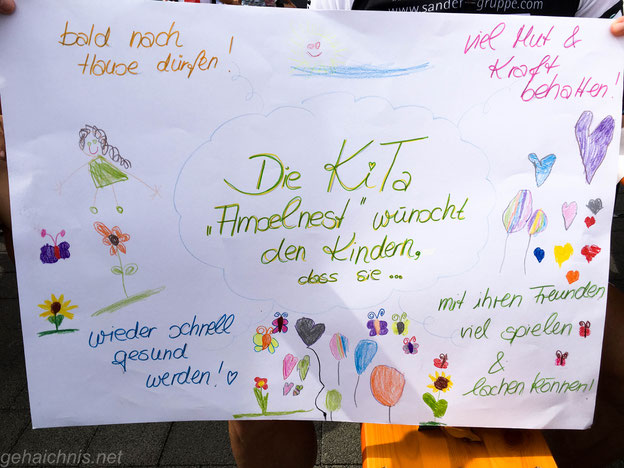 www.sander-gruppe.com
bald nach
Hause dürfen!
viel Mut &
Kraft
behalten!
Die KiTa
„Amselnest" wünscht
den Kindern,
dass sie ...
wieder schnell
gesund
werden!
mit ihren Freunden
viel spielen
&
lachen können!
gehaichnis.net